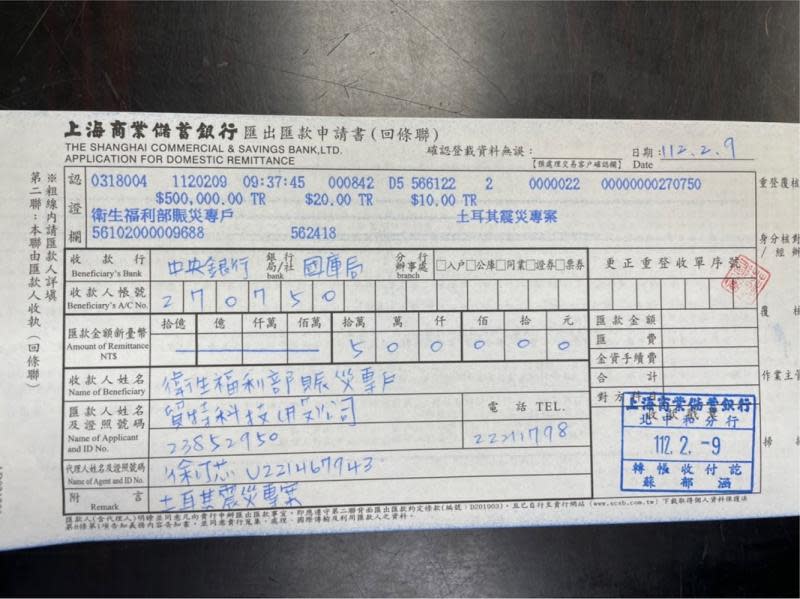 上海商業儲蓄銀行 匯出匯款申請書(回條聯)
THE SHANGHAI COMMERCIAL & SAVINGS BANK,LTD.
APPLICATION FOR DOMESTIC REMITTANCE
確認登載資料無誤:
【限處理交易客戶確認欄】
日期:112.2.9
Date
認證欄
0318004 1120209 09:37:45 000842 D5 566122 2 0000022 00000000270750
$500,000.00 TR $20.00 TR $10.00 TR
衛生福利部賑災專戶 土耳其震災專案
56102000009688 562418
重登覆核
身分核對/經辦
覆核
作業主管
※粗線內請匯款人詳填
第二聯:本聯由匯款人收執(回條聯)
收款行 中央銀行 銀行局/社 國庫局 分行辦事處 □入戶□公庫□同業□證券□票券 更正重登收單序號
Beneficiary's Bank bank branch
收款人帳號 270750
Beneficiary's A/C No.
匯款金額新臺幣 拾億 億 仟萬 佰萬 拾萬 萬 仟 佰 拾 元 匯款金額
Amount of Remittance NT$ 5 0 0 0 0 0 匯費
金資手續費
合計
收款人姓名 衛生福利部賑災專戶
Name of Beneficiary
對方科目
匯款人姓名及證照號碼 質特科技(股)公司 電話 TEL.
Name of Applicant and ID No. 23852950 22211798
代理人姓名及證照號碼 U221467943
Name of Agent and ID No.
附言 土耳其震災專案
Remark
上海商業儲蓄銀行
北中和分行
112.2.-9
轉帳收付訖
蘇郁涵
匯款人(含代理人)明瞭並同意凡向貴行申辦匯出匯款事宜,即應遵守第二聯背面匯出匯款約定條款(編號:D201903),且已自行至貴行網站(www.scsb.com.tw)下載取得個人資料保護法
第8條第1項告知義務內容告知書,並同意貴行蒐集、處理、國際傳輸及利用匯款人之資料。